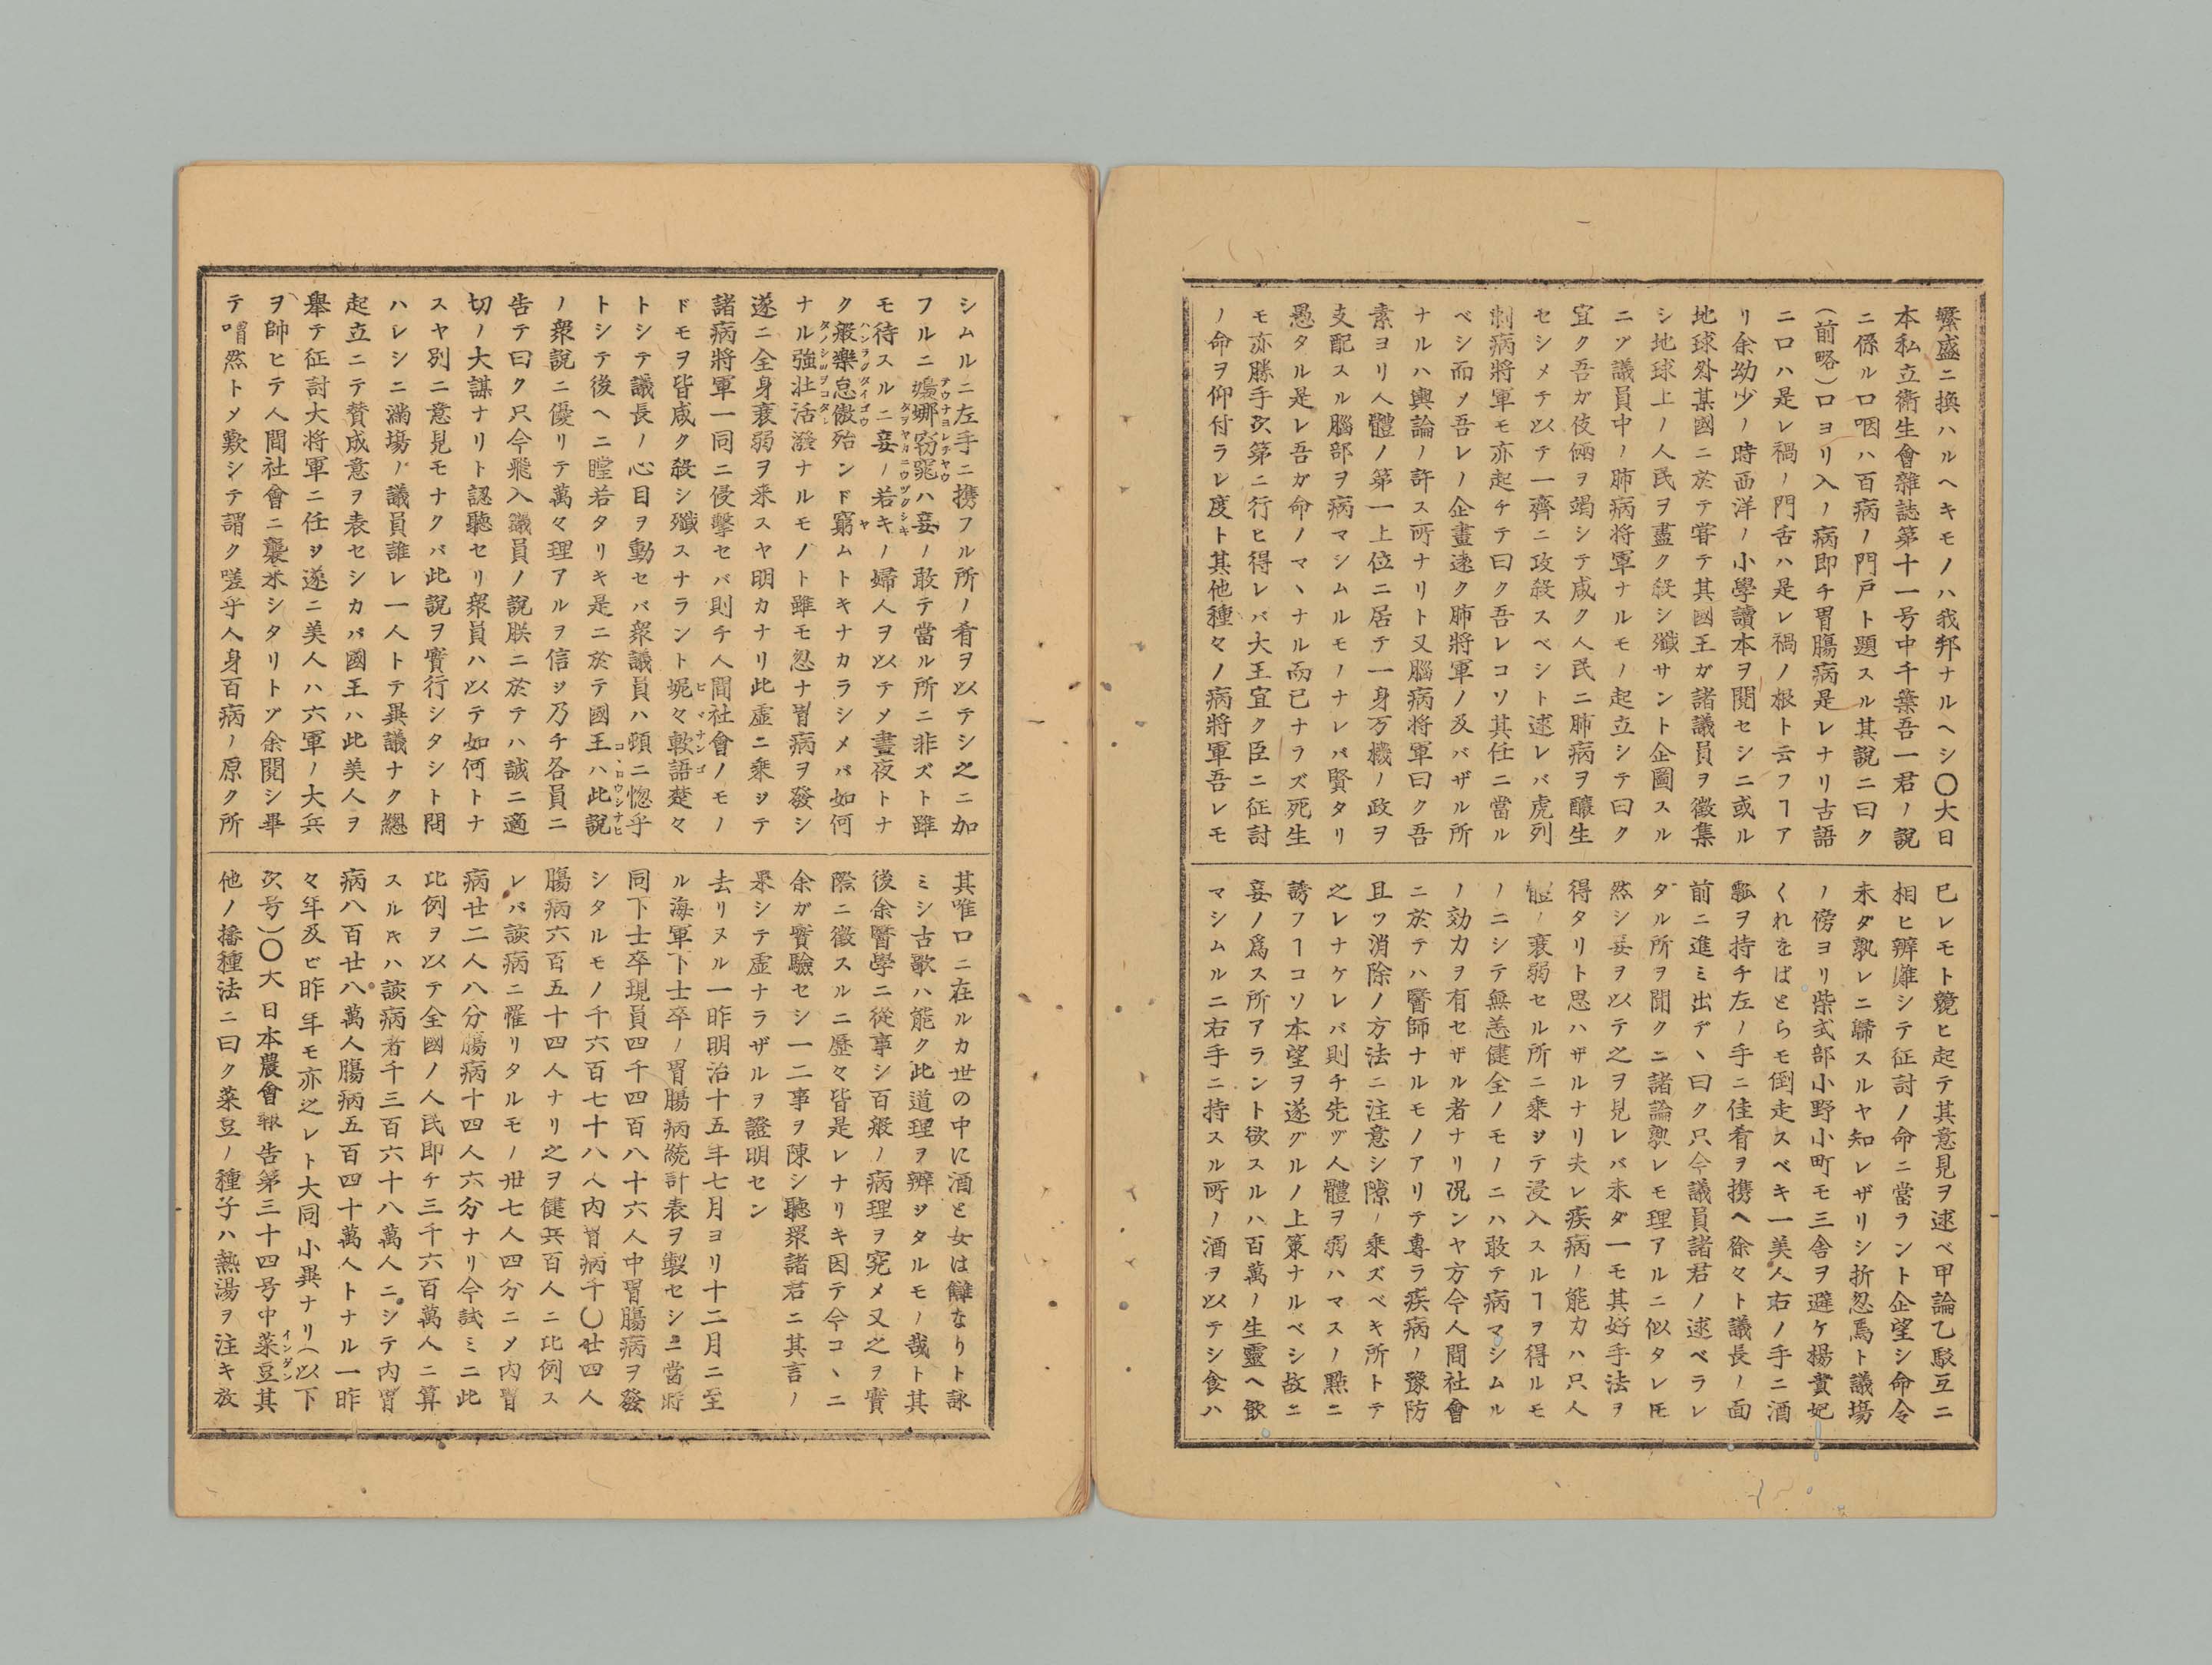 繁盛ニ換ハルヘキモノハ我邦ナルヘシ〇大日
本私立衛生會雜誌第十一号中千葉吾一君ノ説
ニ係ル口咽ハ百病ノ門戸ト題スル其説ニ曰ク
(前略)口ヨリ入ノ病即チ胃腸病是レナリ古語
ニ口ハ是レ禍ノ門舌ハ是レ禍ノ根ト云フヿア
リ余幼少ノ時西洋ノ小學讀本ヲ閲セシニ或ル
地球外某國ニ於テ嘗テ其國王ガ諸議員ヲ徴集
シ地球上ノ人民ヲ盡ク殺シ殲サント企圖スル
ニゾ議員中ノ肺病将軍ナルモノ起立シテ曰ク
宜ク吾ガ伎倆ヲ竭シテ咸ク人民ニ肺病ヲ釀生
セシメテ以テ一齊ニ攻殺スベシト述レバ虎列
剌病將軍モ亦起チテ曰ク吾レコソ其任ニ當ル
ベシ而ソ吾レノ企畫遠ク肺將軍ノ及バザル所
ナルハ輿論ノ許ス所ナリト又腦病将軍曰ク吾
素ヨリ人體ノ第一上位ニ居テ一身万機ノ政ヲ
支配スル腦部ヲ病マシムルモノナレバ賢タリ
愚タル是レ吾ガ命ノマヽナル而已ナラズ死生
モ亦勝手次第ニ行ヒ得レバ大王宜ク臣ニ征討
ノ命ヲ仰付ラレ度ト其他種々ノ病將軍吾レモ
已レモト競ヒ起テ其意見ヲ述ベ甲論乙駁互ニ
相ヒ辨難シテ征討ノ命ニ當ラント企望シ命令
未ダ孰レニ歸スルヤ知レザリシ折忽焉ト議塲
ノ傍ヨリ紫式部小野小町モ三舎ヲ避ケ楊貴妃
くれをばとらモ倒走スベキ一美人右ノ手ニ酒
瓢ヲ持チ左ノ手ニ佳肴ヲ携ヘ徐々ト議長ノ面
前ニ進ミ出デヽ曰ク只今議員諸君ノ述ベラレ
タル所ヲ聞クニ諸論孰レモ理アルニ似タレ𪜈
然シ妾ヲ以テ之ヲ見レバ未ダ一モ其好手法ヲ
得タリト思ハザルナリ夫レ疾病ノ能力ハ只人
體ノ衰弱セル所ニ乗シテ浸入スルヿヲ得ルモ
ノニシテ無恙健全ノモノニハ敢テ病マシムル
ノ効力ヲ有セザル者ナリ况ンヤ方今人間社會
ニ於テハ醫師ナルモノアリテ專ラ疾病ノ豫防
且ツ消除ノ方法ニ注意シ隙ノ乗ズベキ所トテ
之レナケレバ則チ先ヅ人體ヲ弱ハマスノ㸃ニ
誘フヿコソ本望ヲ遂グルノ上策ナルベシ故ニ
妾ノ爲ス所アラント欲スルハ百萬ノ生靈ヘ飲
マシムルニ右手ニ持スル所ノ酒ヲ以テシ食ハ
シムルニ左手ニ携フル所ノ肴ヲ以テシ之ニ加
フルニ嬝娜窈窕ハ妾ノ敢テ當ル所ニ非ズト雖
モ待スルニ妾ノ若キノ婦人ヲ以テメ晝夜トナ
ク般樂怠傲殆ンド窮ムトキナカラシメバ如何
ナル強壮活潑ナルモノト雖モ忍ナ胃病ヲ發シ
遂ニ全身衰弱ヲ来スヤ明カナリ此虚ニ乗シテ
諸病將軍一同ニ侵擊セバ則チ人間社會ノモノ
ドモヲ皆咸ク殺シ殲スナラント娓々軟語楚々
トシテ議長ノ心目ヲ動セバ衆議員ハ頭ニ惚乎
トシテ後ヘニ瞠若タリキ是ニ於テ國王ハ此説
ノ衆説ニ優リテ萬々理アルヲ信シ乃チ各員ニ
告テ曰ク只今飛入議員ノ説朕ニ於テハ誠ニ適
切ノ大謀ナリト認聽セリ衆員ハ以テ如何トナ
スヤ別ニ意見モナクバ此説ヲ實行シタシト問
ハレシニ滿塲ノ議員誰レ一人トテ異議ナク總
起立ニテ賛成意ヲ表セシカバ國王ハ此美人ヲ
舉テ征討大将軍ニ任シ遂ニ美人ハ六軍ノ大兵
ヲ帥ヒテ人間社會ニ襲来シタリトゾ余閲シ畢
テ喟然トメ歎シテ謂ク嗟乎人身百病ノ原ク所
其唯口ニ在ルカ世の中に酒と女は讎なりト詠
ミシ古歌ハ能ク此道理ヲ辨シタルモノ哉ト其
後余醫學ニ從事シ百般ノ病理ヲ究メ又之ヲ實
際ニ徴スルニ歴々皆是レナリキ因テ今コヽニ
余ガ實驗セシ一二事ヲ陳シ聽衆諸君ニ其言ノ
果シテ虚ナラザルヲ證明セン
去リヌル一昨明治十五年七月ヨリ十二月ニ至
ル海軍下士卒ノ胃腸病統計表ヲ製セシニ當時
同下士卒現員四千四百八十六人中胃腸病ヲ發
シタルモノ千六百七十八人内胃病千〇廿四人
腸病六百五十四人ナリ之ヲ健兵百人ニ比例ス
レバ該病ニ罹リタルモノ卅七人四分ニメ内胃
病廿二人八分腸病十四人六分ナリ今試ミニ此
比例ヲ以テ全國ノ人民即チ三千六百萬人ニ算
スルキハ該病者千三百六十八萬人ニシテ内胃
病八百廿八萬人腸病五百四十萬人トナル一昨
々年及ビ昨年モ亦之レト大同小異ナリ(以下
次号)〇大日本農會報告第三十四号中菜豆其
他ノ播種法ニ曰ク菜豆ノ種子ハ熱湯ヲ注キ放